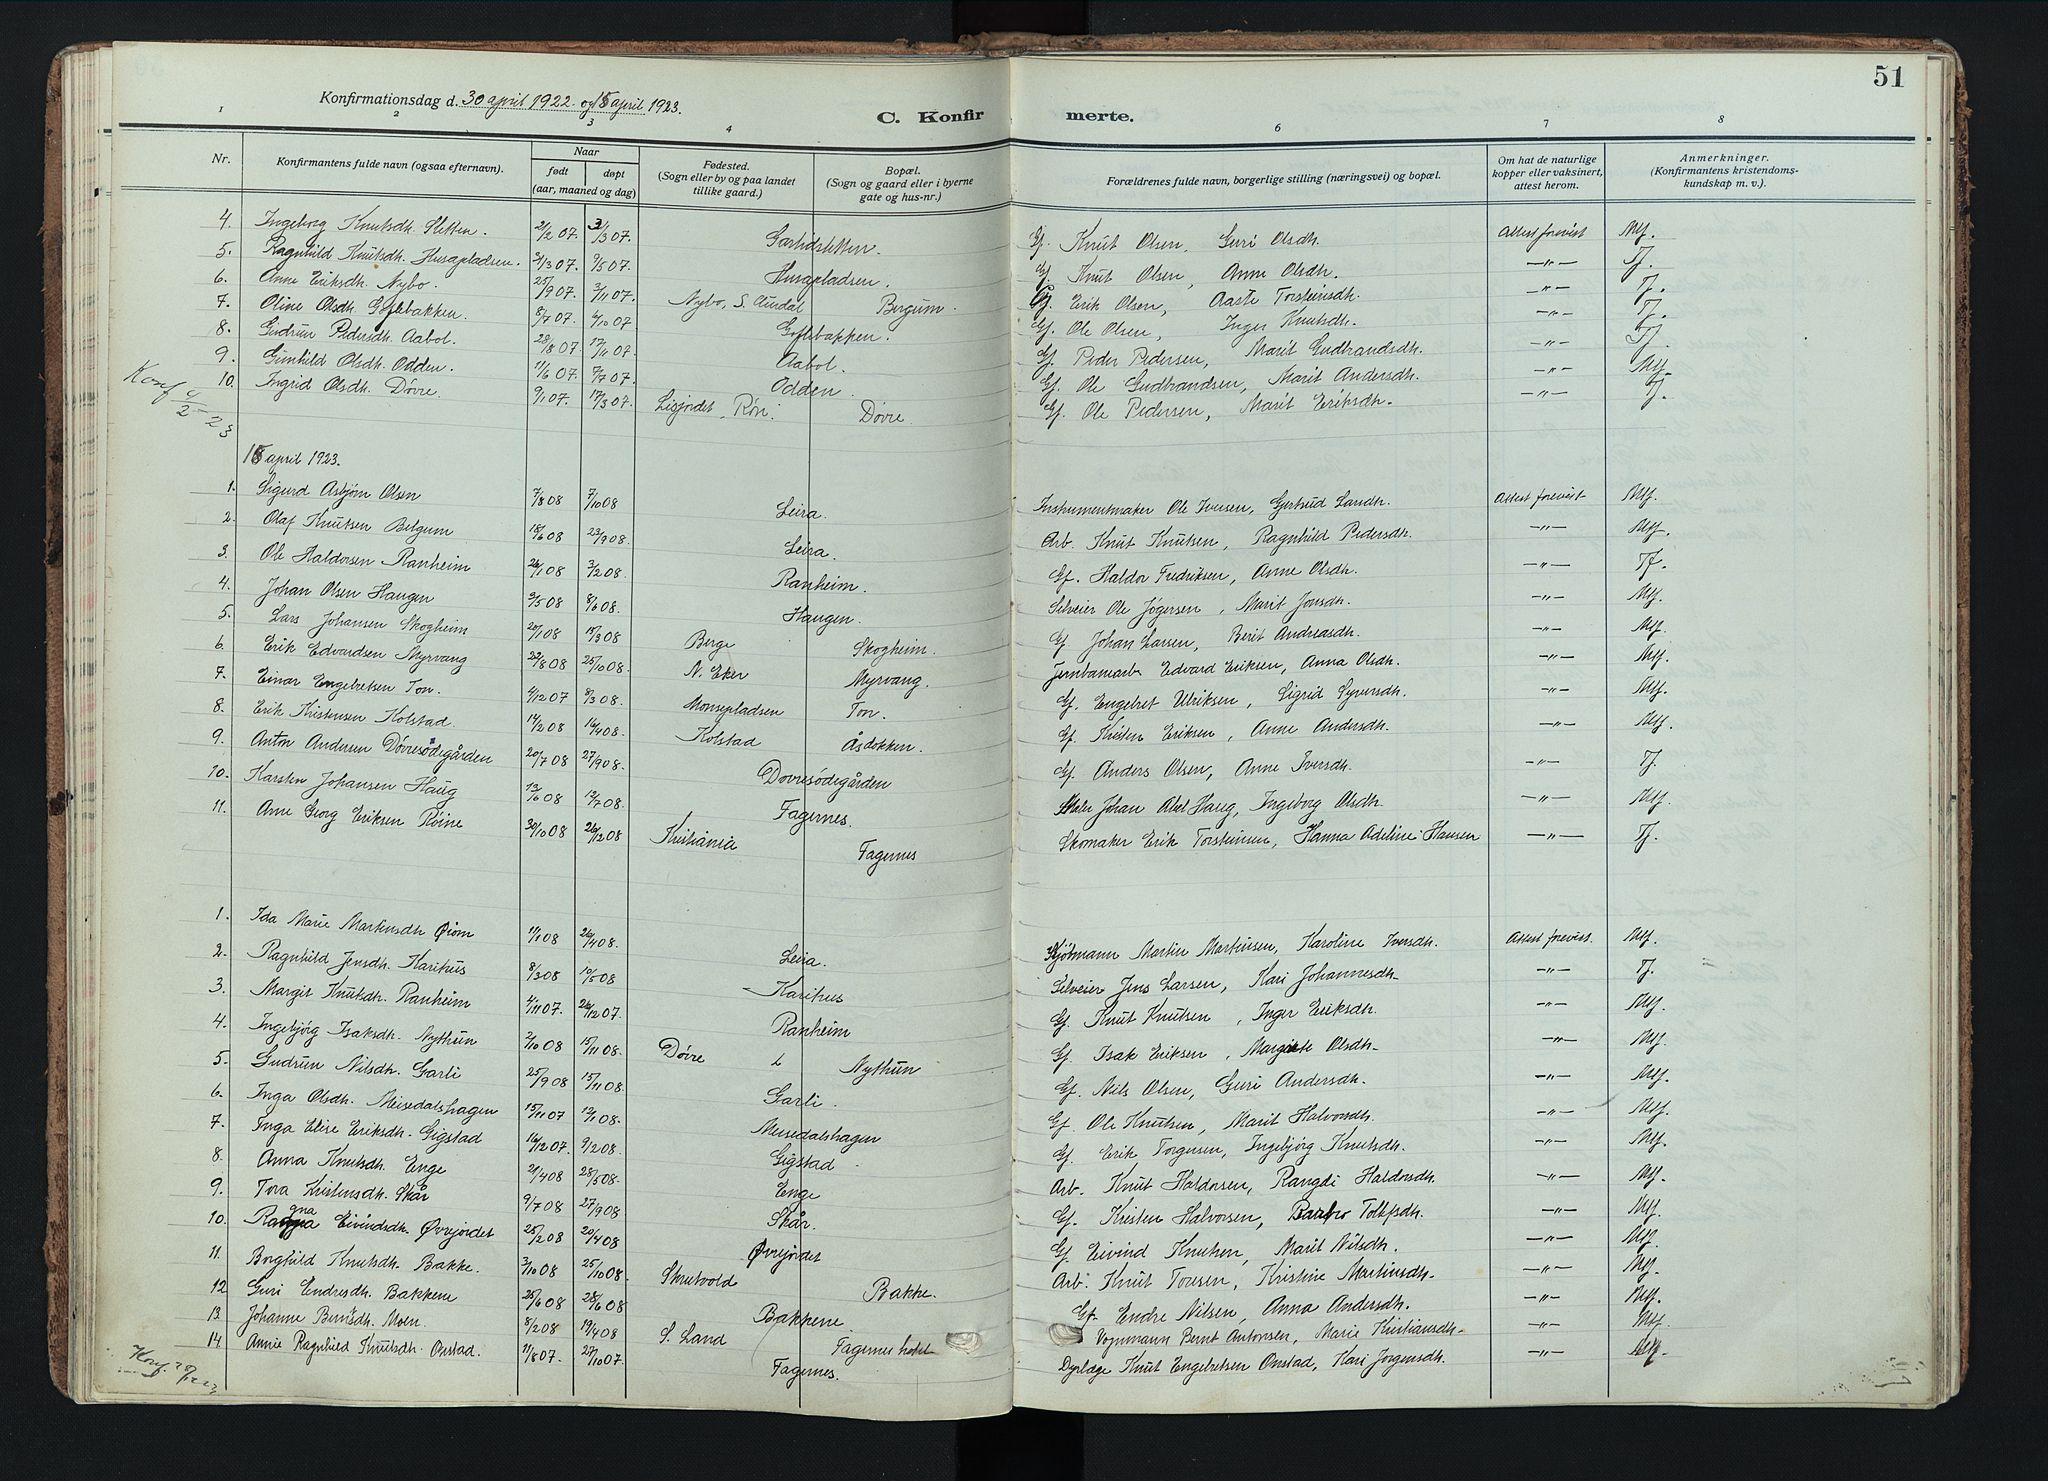 51
Konfirmationsdag d. 30 april 1922 og 15 april 1923.
C. Konfirmerte.
1 2 3 4 6 7 8
Nr. Konfirmantens fulde navn (ogsaa efternavn). Naar født døpt (aar, maaned og dag) Fødested. (Sogn eller by og paa landet tillike gaard.) Bopæl. (Sogn og gaard eller i byerne gate og hus-nr.) Forældrenes fulde navn, borgerlige stilling (næringsvei) og bopæl. Om hat de naturlige kopper eller vaksinert, attest herom. Anmerkninger. (Konfirmantens kristendomskundskap m. v.).
4. Ingeborg Knutsdh. Sletten. 2/2 07. 3/3 07. Garlidsletten. Gf. Knut Olsen, Guri Olsdh. Attest forevist Mtf.
5. Ragnhild Knutsdh. Husapladsen. 21/3 07. 9/5 07. Husapladsen. Gf. Knut Olsen, Anne Olsdh. —"— Tf.
6. Anne Eriksdh. Nybo. 25/9 07. 3/11 07. Nybo, S. Aurdal Bergum. Gf. Erik Olsen, Aaste Torsteinsdh. —"— Tf.
7. Oline Olsdh. Goflebakken. 8/7 07. 6/10 07 Goflebakken. Gf. Ole Olsen, Inger Knutsdh. —"— Tf.
8. Gudrun Pedersdh. Aabol. 28/8 07. 17/11 07. Aabol. Gf. Peder Pedersen, Marit Gudbrandsdh. —"— Tf.
9. Gunhild Olsdh. Odden. 11/6 07. 7/7 07. Odden. Gf. Ole Gudbrandsen, Marit Andersdh. —"— Mtf.
10. Ingrid Olsdh. Døvre. 9/1 07. 17/3 07. Lisjordet, Røn. Døvre. Gf. Ole Pedersen, Marit Eriksdh. —"— Tf.
Konf 4/2 – 23
15 april 1923.
1. Sigurd Asbjørn Olsen 7/8 08 7/10 08 Leira. Instrumentmaker Ole Iversen, Gertrud Larsdh. Attest forevist Mtf.
2. Olaf Knutsen Belgum 18/6 08 23/9 08. Leira. Arb. Knut Knutsen, Ragnhild Pedersdh. —"— Mtf.
3. Ole Haldorsen Ranheim 26/1 08 3/2 08. Ranheim. Gf. Haldor Fredriksen, Anne Olsdh. —"— Tf.
4. Johan Olsen Haugen 9/5 08 8/6 08. Haugen. Selveier Ole Jøgersen, Marit Jonsdh. —"— Mtf.
5. Lars Johansen Skogheim 20/1 08 15/3 08 Berge Skogheim. Gf Johan Larsen, Berit Andreasdh. —"— Mtf.
6. Erik Edvardsen Myrvang 22/8 08 25/10 08. N. Eker Myrvang. Jernbanearb Edvard Eriksen, Anna Olsdh. —"— Mtf.
7. Einar Engebretsen Ton. 4/12 07 8/3 08. Monsepladsen Ton. Gf. Engebret Ulriksen, Sigrid Syversdh. —"— Mtf.
8. Erik Kristensen Kolstad. 14/2 08 16/4 08. Kolstad Åsdokken. Gf. Kristen Eriksen, Anne Andersdh. —"— Mtf.
9. Anton Andersen Døvresødegården 20/7 08 27/9 08. Dovresødegården Gf. Anders Olsen, Anne Iversdh. —"— Tf.
10. Karsten Johansen Haug 12/6 08 12/7 08. Fagernes. Johan Axel Haug, Ingeborg Olsdh. —"— Mtf.
11. Arne Georg Eriksen Röine 30/10 08 26/12 08 Kristiania Fagernes Skomaker Erik Torsteinsen, Hanna Adeline Hansen —"— Tf.
1. Ida Marie Martinsdh. Öiom 11/1 08 26/4 08. Leira. Martin Martinsen, Karoline Iversdh. Attest forevist. Mtf.
2. Ragnhild Jensdh. Karihus 8/3 08 10/5 08. Karihus Selveier Jens Larsen, Kari Johannesdh. —"— Tf.
3. Margit Knutsdh. Ranheim 4/11 07 26/12 07. Ranheim Gf. Knut Knutsen, Inger Eriksdh. —"— Mtf.
4. Ingebjörg Isaksdh. Nythun 2/10 08 15/11 08. Døvre Nythun Gf. Isak Eriksen, Margrete Olsdh. —"— Mtf.
5. Gudrun Nilsdh. Garli 25/9 08 15/11 08. Garli. Gf. Nils Olsen, Guri Andersdh. —"— Mtf.
6. Inga Olsdh. Meisedalshagen 15/11 07 12/1 08. Meisedalshagen Gf. Ole Knutsen, Marit Halvorsdh. —"— Mtf.
7. Inga Elise Eriksdh. Gigstad 16/12 07. 9/2 08. Gigstad Gf. Erik Torgersen, Ingebjörg Knutsdh. —"— Mtf.
8. Anna Knutsdh. Enge 21/4 08 28/5 08. Enge Arb. Knut Haldorsen, Rangdi Haldorsdh. —"— Mtf.
9. Tora Kristensdh. Skår 9/7 08 27/9 08 Skår. Gf. Kristen Halvorsen, Barbro Tollefsdh. —"— Mtf.
10. Ragna Eivindsdh. Øvrejordet 25/2 08 20/4 08 Øvrejordet Gf Eivind Knutsen, Marit Nilsdh. —"— Mtf.
11. Borghild Knutsdh. Bakke. 3/10 08 25/10 08. Skrutvold Bakke. Arb. Knut Tovsen, Kristine Martinsdh. —"— Mtf.
12 Guri Endresdh. Bakkene 25/6 08 28/6 08 Bakkene Gf. Endre Nilsen, Anna Andersdh. —"— Mtf.
13. Johanne Berntsdh. Moen. 8/2 08 19/4 08 S. Land Fagernes hotel Vognmann Bernt Antonsen, Marie Kristiansdh. —"— Mtf.
14. Annie Ragnhild Knutsdh. Onstad. 11/8 07. 27/10 07. Fagernes. Dyrlæge Knut Engebretsen Onstad, Kari Jorgensdh. —"— Mtf.
Konf.